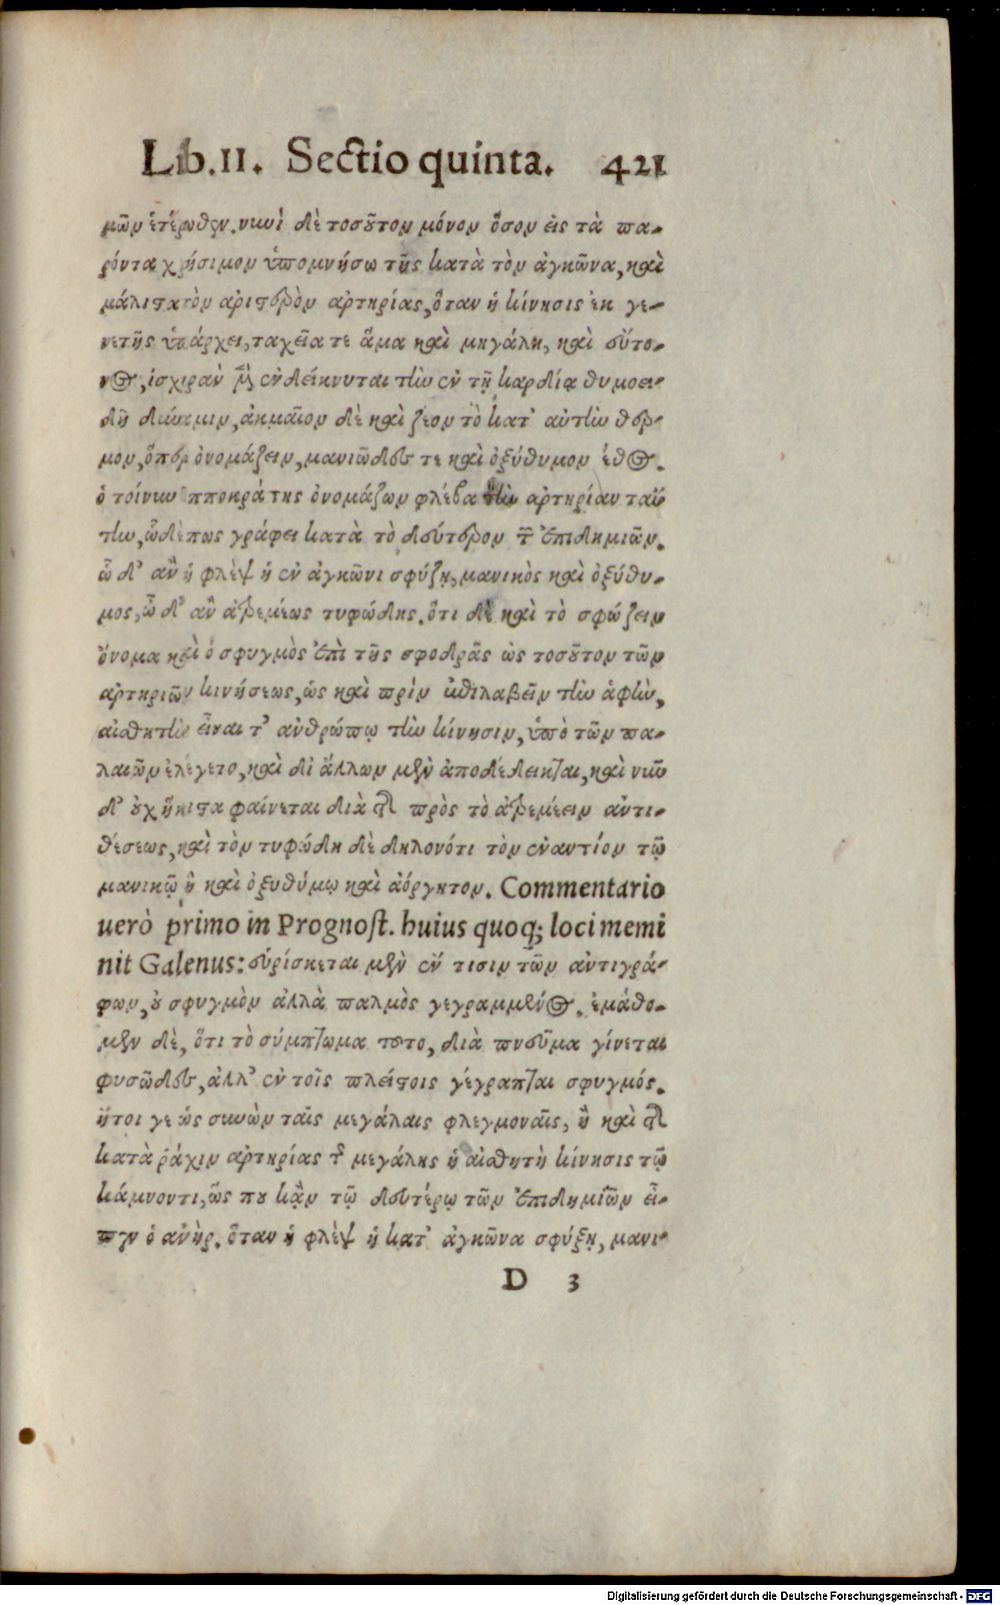 Lib. II. Sectio quinta. 421
μῶν ἑτέρωθεν. νυνὶ δὲ τοσοῦτον μόνον ὅσον εἰς τὰ πα-
ρόντα χρήσιμον ὑπομνήσω τῆς κατὰ τὸν ἀγκῶνα, καὶ
μάλιστα τὸν ἀριστερὸν ἀρτηρίας, ὅταν ἡ κίνησις ἐκ γε-
νετῆς ὑπάρχει, ταχεῖα τε ἅμα καὶ μηγάλη, καὶ εὔτο-
νος, ἰσχιρὰν μὲν ἐνδείκνυται τὴν ἐν τῇ καρδίᾳ θυμοει-
δῆ δύναμιν, ἀκμαῖον δὲ καὶ ζέον τὸ κατ' αὐτὴν θερ-
μον, ὅπερ ὀνομάζειν, μανιῶδες τε καὶ ὀξύθυμον ἔθος.
ὁ τοίνυν ἱπποκράτης ὀνομάζων φλέβα τὴν ἀρτηρίαν ταύ
την, ὧδέ πως γράφει κατὰ τὸ δεύτερον τῶν ἐπιδημιῶν.
ᾧ δ' ἂν ἡ φλὲψ ἡ ἐν ἀγκῶνι σφύζῃ, μανικὸς καὶ ὀξύθυ-
μος, ᾧ δ' ἂν ἀτρεμέως τυφώδης. ὅτι δὲ καὶ τὸ σφύζειν
ὄνομα καὶ ὁ σφυγμὸς ἐπὶ τῆς σφοδρᾶς ὡς τοσοῦτον τῶν
ἀρτηριῶν κινήσεως, ὡς καὶ πρὶν ἐπιλαβεῖν τὴν ἁφὴν,
αἰσθητὴν εἶναι τῷ ἀνθρώπῳ τὴν κίνησιν, ὑπὸ τῶν πα-
λαιῶν ἐλέγετο, καὶ δι ἄλλων μὲν ἀποδέδεικται, καὶ νῦν
δ' οὐχ ἥκιστα φαίνεται διὰ τῆς πρὸς τὸ ἀτρεμέειν ἀντι-
θέσεως, καὶ τὸν τυφώδη δὲ δηλονότι τὸν ἐναντίον τῷ
μανικῷ ἢ καὶ ὀξυθύμῳ καὶ ἀόργητον. Commentario
uerò primo in Prognost. huius quoq; loci memi
nit Galenus: εὑρίσκεται μὲν ἔν τισιν τῶν ἀντιγρά-
φων, οὐ σφυγμὸν ἀλλὰ παλμὸς γεγραμμένος. ἐμάθο-
μεν δὲ, ὅτι τὸ σύμπτωμα τοῦτο, διὰ πνεῦμα γίνεται
φυσῶδες, ἀλλ' ἐν τοῖς πλείστοις γέγραπται σφυγμός.
ἤτοι γε ὡς συνὼν ταῖς μεγάλαις φλεγμοναῖς, ἢ καὶ τῆς
κατὰ ῥάχιν ἀρτηρίας τῆς μεγάλης ἡ αἰσθητὴ κίνησις τῷ
κάμνοντι, ὥς που κᾂν τῷ δευτέρῳ τῶν ἐπιδημιῶν εἶ-
πεν ὁ ἀνὴρ. ὅταν ἡ φλὲψ ἡ κατ' ἀγκῶνα σφύξῃ, μανι-
D 3
Digitalisierung gefördert durch die Deutsche Forschungsgemeinschaft - DFG